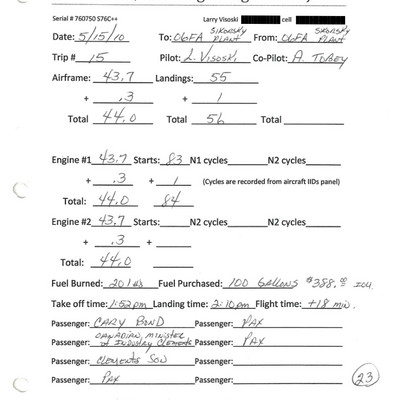 Serial # 760750 S76C++ Larry Visoski cell
Date: 5/15/10 To: 06FA SIKORSKY PLANT From: 06FA SIKORSKY PLANT
Trip # 15 Pilot: L. VISOSKI Co-Pilot: A. TOBEY
Airframe: 43.7 Landings: 55
+ .3 + 1
Total 44.0 Total 56
Engine #1 43.7 Starts: 83 N1 cycles N2 cycles
+ .3 + 1 (Cycles are recorded from aircraft IIDs panel)
Total: 44.0 84
Engine #2 43.7 Starts: N2 cycles N2 cycles
+ .3 +
Total: 44.0
Fuel Burned: 201 #s Fuel Purchased: 100 GALLONS $388.00
Take off time: 1:52pm Landing time: 2:10pm Flight time: +18 min.
Passenger: CARY BOND Passenger: PAX
Passenger: CANADIAN, MINISTER of INDUSTRY CLEMENTS Passenger: PAX
Passenger: CLEMENTS SON Passenger:
Passenger: PAX Passenger:
23